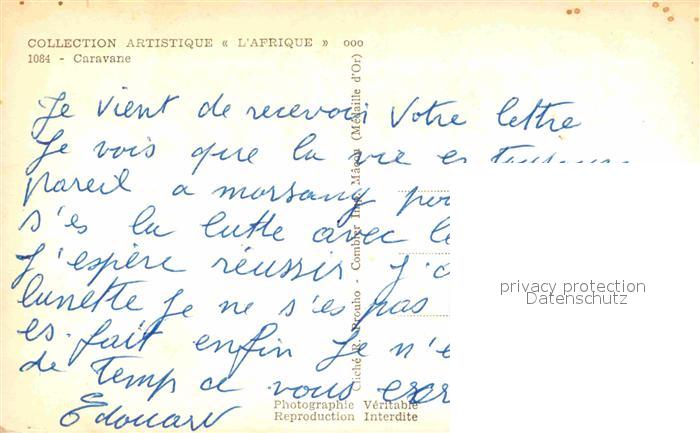 COLLECTION ARTISTIQUE « L'AFRIQUE » ooo
1084 - Caravane
Je vient de recevoir votre lettre
Je vois que la vie es toujours
pareil a morsang
s'es la lutte avec
J'espère réussir
lunette Je ne s'es pas
es. fait enfin Je n'
de temp a vous
Edouard
Cliché R. Prouho - Combier Imp. Mâcon (Médaille d'Or)
Photographie Véritable
Reproduction Interdite
privacy protection
Datenschutz